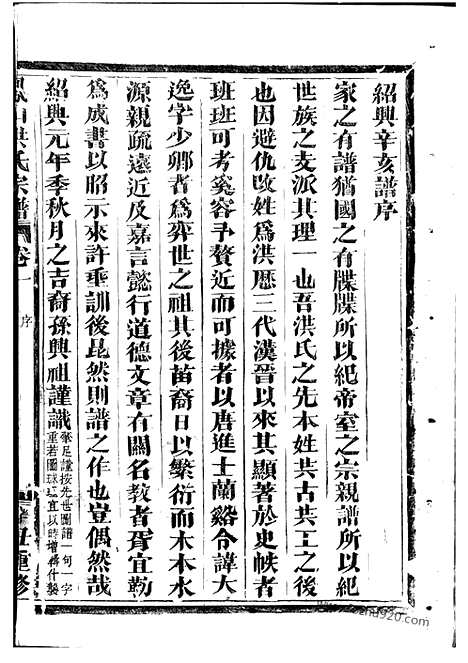 紹興辛亥譜序
家之有譜猶國之有牒牒所以紀帝室之宗親譜所以紀
世族之支派其理一也吾洪氏之先本姓共古共工之後
也因避仇改姓爲洪歷三代漢晉以來其顯著於史帙者
班班可考奚容予贅近而可據者以唐進士蘭谿令諱大
逸字少卿者爲弈世之祖其後苗裔日以繁衍而木本水
源親疏遠近及嘉言懿行道德文章有關名教者胥宜勒
爲成書以昭示來許垂訓後昆然則譜之作也豈偶然哉
紹興元年季秋月之吉裔孫興祖謹識
聚足謹按先世圖譜一句一字
重若圖球宜以時增輯什襲
洪氏宗譜
卷一
序
重修
www.zhu920.com